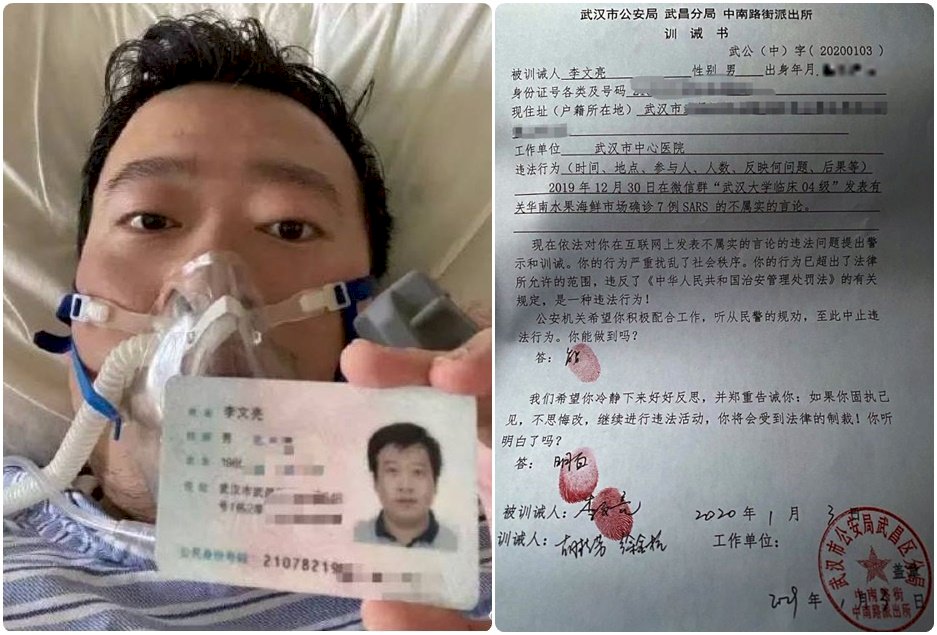 姓名 李文亮
性别 男
住址 武汉市武昌
公民身份号码 2107821
武汉市公安局 武昌分局 中南路街派出所
训 诫 书
武公（中）字（20200103）
被训诫人 李文亮 性别 男 出身年月
身份证号各类及号码
现住址（户籍所在地） 武汉市
工作单位 武汉市中心医院
违法行为（时间、地点、参与人、人数、反映何问题、后果等）
2019年12月30日在微信群“武汉大学临床04级”发表有
关华南水果海鲜市场确诊7例SARS的不属实的言论。
现在依法对你在互联网上发表不属实的言论的违法问题提出警
示和训诫。你的行为严重扰乱了社会秩序。你的行为已超出了法律
所允许的范围，违反了《中华人民共和国治安管理处罚法》的有关
规定，是一种违法行为！
公安机关希望你积极配合工作，听从民警的规劝，至此中止违
法行为。你能做到吗？
答： 能
我们希望你冷静下来好好反思，并郑重告诫你：如果你固执己
见，不思悔改，继续进行违法活动，你将会受到法律的制裁！你听
明白了吗？
答： 明白
被训诫人： 李文亮 2020年1月3日
训诫人： 工作单位：
武汉市公安局武昌区分局
盖章
中南路街
中南路派出所
年1月3日